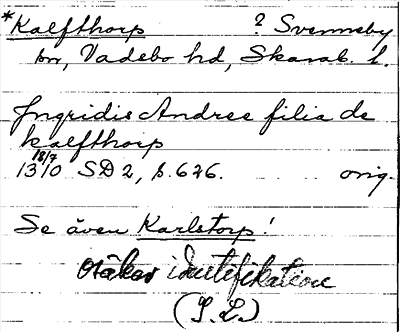 *Kalfthorp ? Svenneby
sn, Vadsbo hd, Skarab. l.
Ingridis Andree filia de
kalfthorp
18/7
1310 SD 2, s. 626. orig.
Se även Karlstorp!
Osäker identifikation
(S.L.)